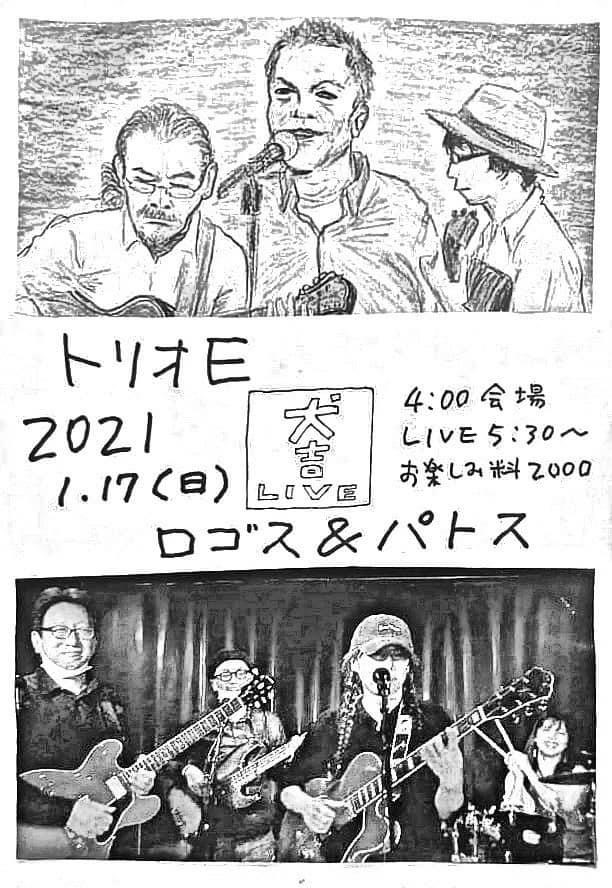 トリオE
2021
1.17(日)
犬吉
LIVE
4:00 会場
LIVE 5:30〜
お楽しみ料2000
ロゴス&パトス